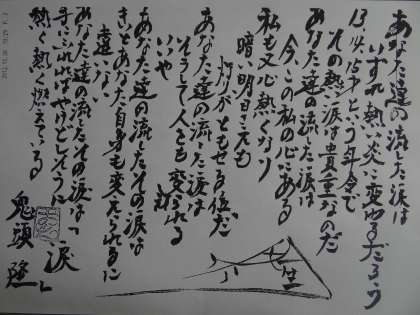 あなた達の流した涙は
いずれ熱い炎に変わるだろう
13.14.15才という年令で
その熱い涙は貴重なのだ
あなた達の流した涙は
今、この私の心にある
私も又心熱くなり
暗い明日さえも
灯がともせる位だ
あなた達の流した涙は
そうして人をも変えられる
いや
あなた達の流したその涙は
きっとあなた自身も変えられるに
違いない
あなた達の流したその涙は
手にふれればやけどしそうに
熱く熱く燃えている
涙
鬼頭 隆